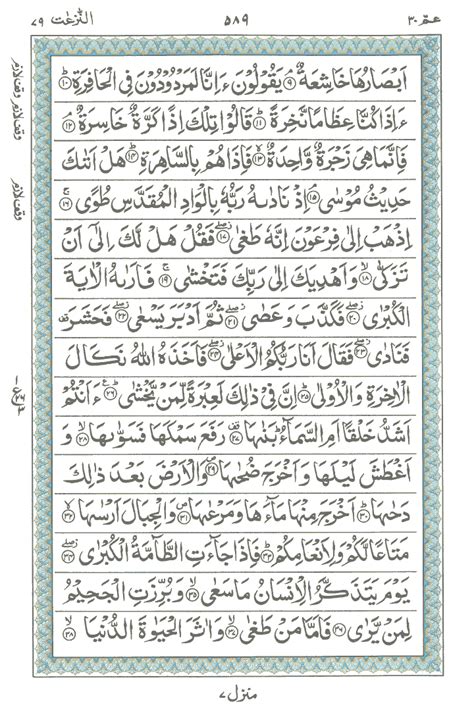 عمّ ۳۰ ۵۸۹ النّٰزعٰت ۷۹
اَبۡصَارُهَا خَاشِعَةٌ ۘ﴿۹﴾ یَقُوۡلُوۡنَ ءَاِنَّا لَمَرۡدُوۡدُوۡنَ فِی الۡحَافِرَةِ ﴿ؕ۱۰﴾
ءَاِذَا كُنَّا عِظَامًا نَّخِرَةً ﴿ؕ۱۱﴾ قَالُوۡا تِلۡكَ اِذًا كَرَّةٌ خَاسِرَةٌ ۘ﴿۱۲﴾
فَاِنَّمَا هِیَ زَجۡرَةٌ وَّاحِدَةٌ ﴿ۙ۱۳﴾ فَاِذَا هُمۡ بِالسَّاهِرَةِ ﴿ؕ۱۴﴾ هَلۡ اَتٰىكَ
حَدِیۡثُ مُوۡسٰی ۘ﴿۱۵﴾ اِذۡ نَادٰىهُ رَبُّهٗ بِالۡوَادِ الۡمُقَدَّسِ طُوًی ﴿ۚ۱۶﴾
اِذۡهَبۡ اِلٰی فِرۡعَوۡنَ اِنَّهٗ طَغٰی ﴿۫ۖ۱۷﴾ فَقُلۡ هَلۡ لَّكَ اِلٰۤی اَنۡ
تَزَكّٰی ﴿ۙ۱۸﴾ وَ اَهۡدِیَكَ اِلٰی رَبِّكَ فَتَخۡشٰی ﴿ۚ۱۹﴾ فَاَرٰىهُ الۡاٰیَةَ
الۡكُبۡرٰی ﴿۫ۖ۲۰﴾ فَكَذَّبَ وَ عَصٰی ﴿۫ۖ۲۱﴾ ثُمَّ اَدۡبَرَ یَسۡعٰی ﴿۫ۖ۲۲﴾ فَحَشَرَ
فَنَادٰی ﴿۫ۖ۲۳﴾ فَقَالَ اَنَا رَبُّكُمُ الۡاَعۡلٰی ﴿۫ۖ۲۴﴾ فَاَخَذَهُ اللّٰهُ نَكَالَ
الۡاٰخِرَةِ وَ الۡاُوۡلٰی ﴿ؕ۲۵﴾ اِنَّ فِیۡ ذٰلِكَ لَعِبۡرَةً لِّمَنۡ یَّخۡشٰی ﴿ؕ۲۶﴾ ءَاَنۡتُمۡ
اَشَدُّ خَلۡقًا اَمِ السَّمَآءُ ؕ بَنٰىهَا ﴿۲۷﴾ رَفَعَ سَمۡكَهَا فَسَوّٰىهَا ﴿ۙ۲۸﴾ وَ
اَغۡطَشَ لَیۡلَهَا وَ اَخۡرَجَ ضُحٰىهَا ﴿۪۲۹﴾ وَ الۡاَرۡضَ بَعۡدَ ذٰلِكَ
دَحٰىهَا ﴿ؕ۳۰﴾ اَخۡرَجَ مِنۡهَا مَآءَهَا وَ مَرۡعٰىهَا ﴿۪۳۱﴾ وَ الۡجِبَالَ اَرۡسٰىهَا ﴿ۙ۳۲﴾
مَتَاعًا لَّكُمۡ وَ لِاَنۡعَامِكُمۡ ﴿ؕ۳۳﴾ فَاِذَا جَآءَتِ الطَّآمَّةُ الۡكُبۡرٰی ﴿۫ۖ۳۴﴾
یَوۡمَ یَتَذَكَّرُ الۡاِنۡسَانُ مَا سَعٰی ﴿ۙ۳۵﴾ وَ بُرِّزَتِ الۡجَحِیۡمُ
لِمَنۡ یَّرٰی ﴿۳۶﴾ فَاَمَّا مَنۡ طَغٰی ﴿ۙ۳۷﴾ وَ اٰثَرَ الۡحَیٰوةَ الدُّنۡیَا ﴿ۙ۳۸﴾
وقف لازم
وقف لازم
وقف لازم
منزل ۷